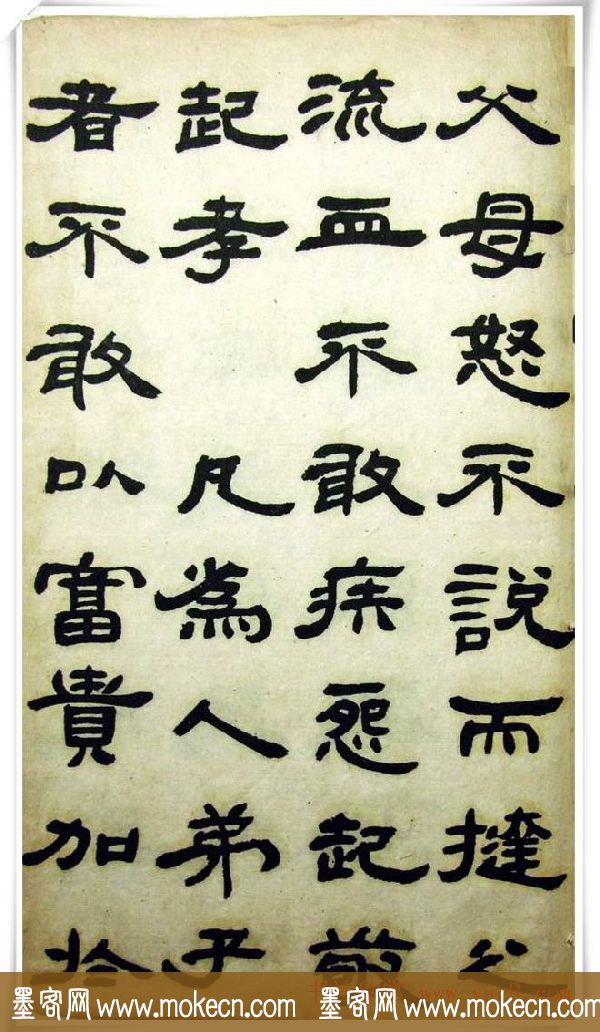 父母怒不說而撻之
流血不敢疾怨起敬
起孝 凡爲人弟子
者不敢以富貴加於
墨客网 www.mokecn.com 墨客网 www.mokecn.com